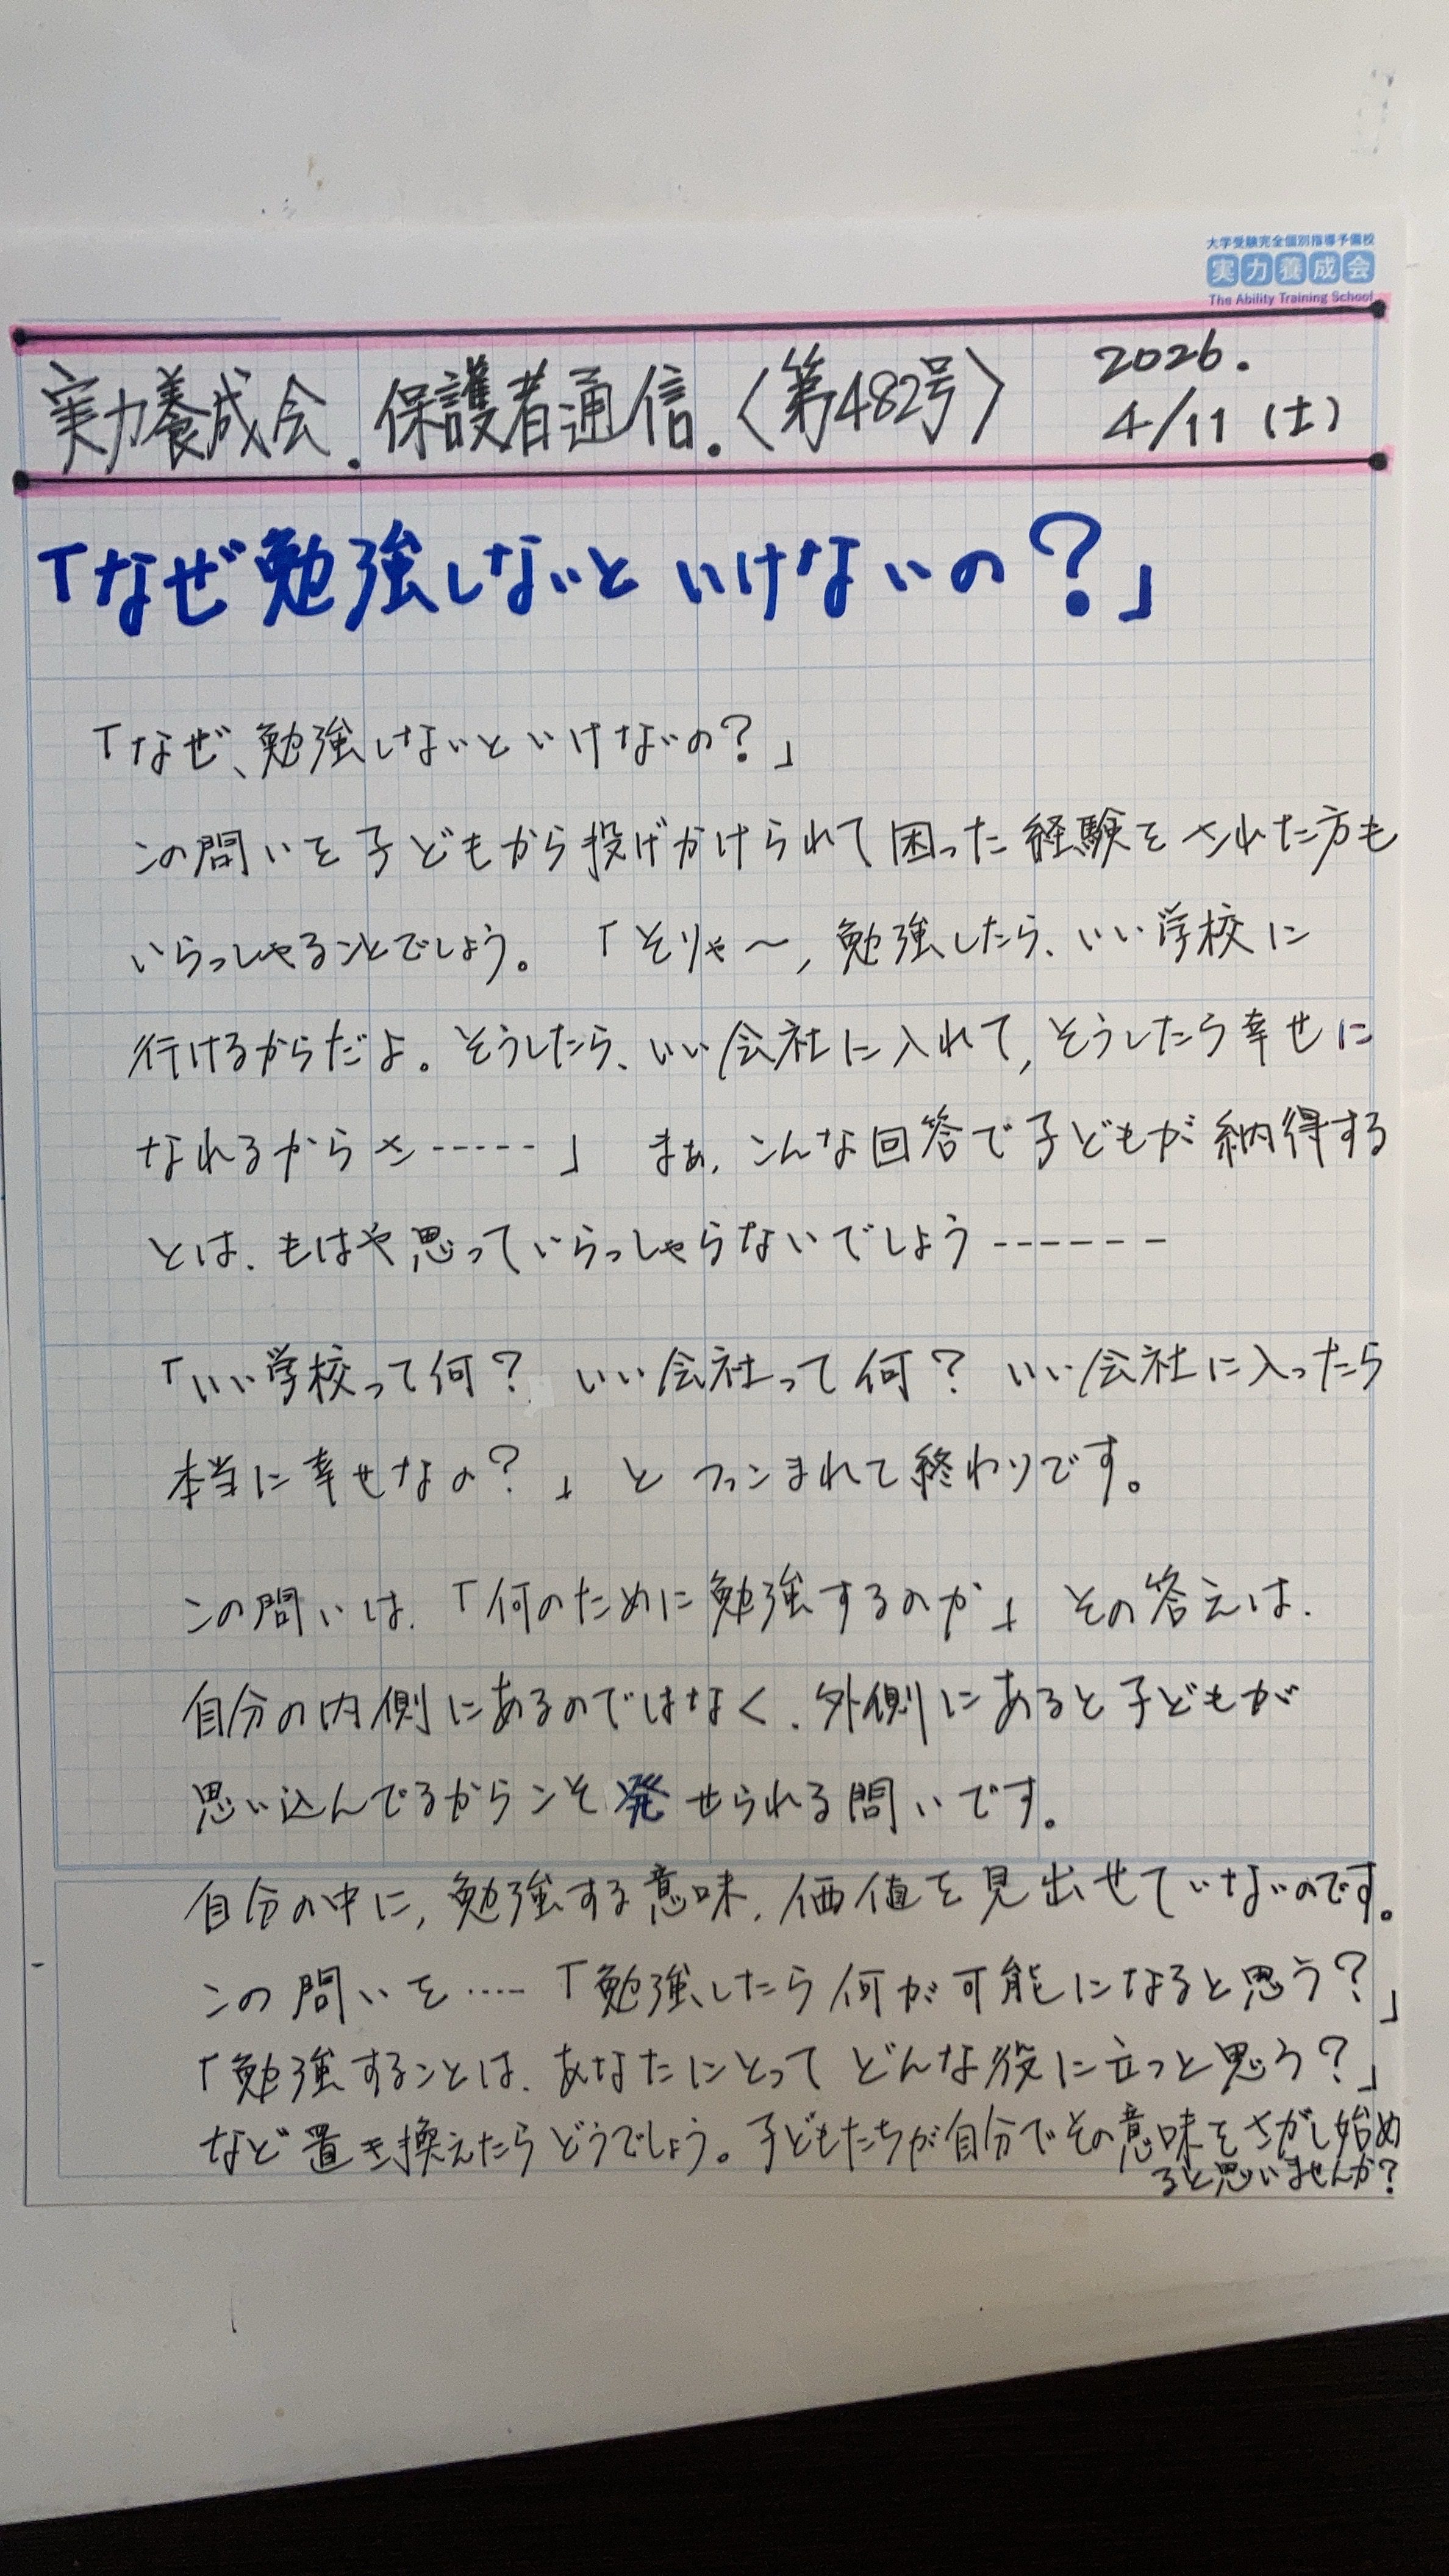 大学受験完全個別指導予備校
実力養成会
The Ability Training School
実力養成会.保護者通信.〈第482号〉
2026.
4/11(土)
「なぜ勉強しないといけないの?」
「なぜ、勉強しないといけないの?」
この問いを子どもから投げかけられて困った経験をされた方も
いらっしゃることでしょう。「そりゃ〜,勉強したら、いい学校に
行けるからだよ。そうしたら、いい会社に入れて,そうしたら幸せに
なれるからさ-----」まぁ、こんな回答で子どもが納得する
とは、もはや思っていらっしゃらないでしょう------
「いい学校って何?いい会社って何?いい会社に入ったら
本当に幸せなの?」とつっこまれて終わりです。
この問いは、「何のために勉強するのか」その答えは、
自分の内側にあるのではなく、外側にあると子どもが
思い込んでるからこそ発せられる問いです。
自分の中に,勉強する意味、価値を見出せていないのです。
この問いを····「勉強したら何が可能になると思う?」
「勉強することは、あなたにとってどんな役に立つと思う?」
など置き換えたらどうでしょう。子どもたちが自分でその意味をさがし始め
ると思いませんか?